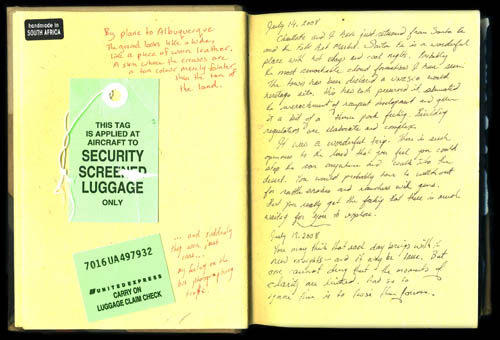 handmade in
SOUTH AFRICA
By plane to Albuquerque
The ground looks like a hide,
like a piece of worn leather.
A skin where the creases are
a tan colour merely fainter
than the tan of
the land.
THIS TAG
IS APPLIED AT
AIRCRAFT TO
SECURITY
SCREENED
LUGGAGE
ONLY
... and suddenly
they were just
there...
my being on the
bus photographing
traffic.
7016UA497932
UNITED EXPRESS
CARRY ON
LUGGAGE CLAIM CHECK
July 14, 2008
Charlotte and I have just returned from Santa Fe
and the Folk Art Market. Santa Fe is a wonderful
place with hot days and cool nights. Probably
the most remarkable cloud formations I have seen.
The town has been declared a UNESCO world
heritage site. This has both preserved it, 
the encroachment of rampant development and given
it a bit of a theme park feeling. Building
regulations are elaborate and complex.
It was a wonderful trip. There is such
openness to the land that you feel you could
stop the car anywhere and walk into the
desert. You would probably have to watch out
for rattle snakes and ranchers with guns.
But you really get the feeling that there is much
waiting for you to explore.
July 19, 2008
You may think that each day brings with it
new insights - and it may be true. But
one cannot deny that the moments of
clarity are limited. And so to
ignore them is to loose them forever.